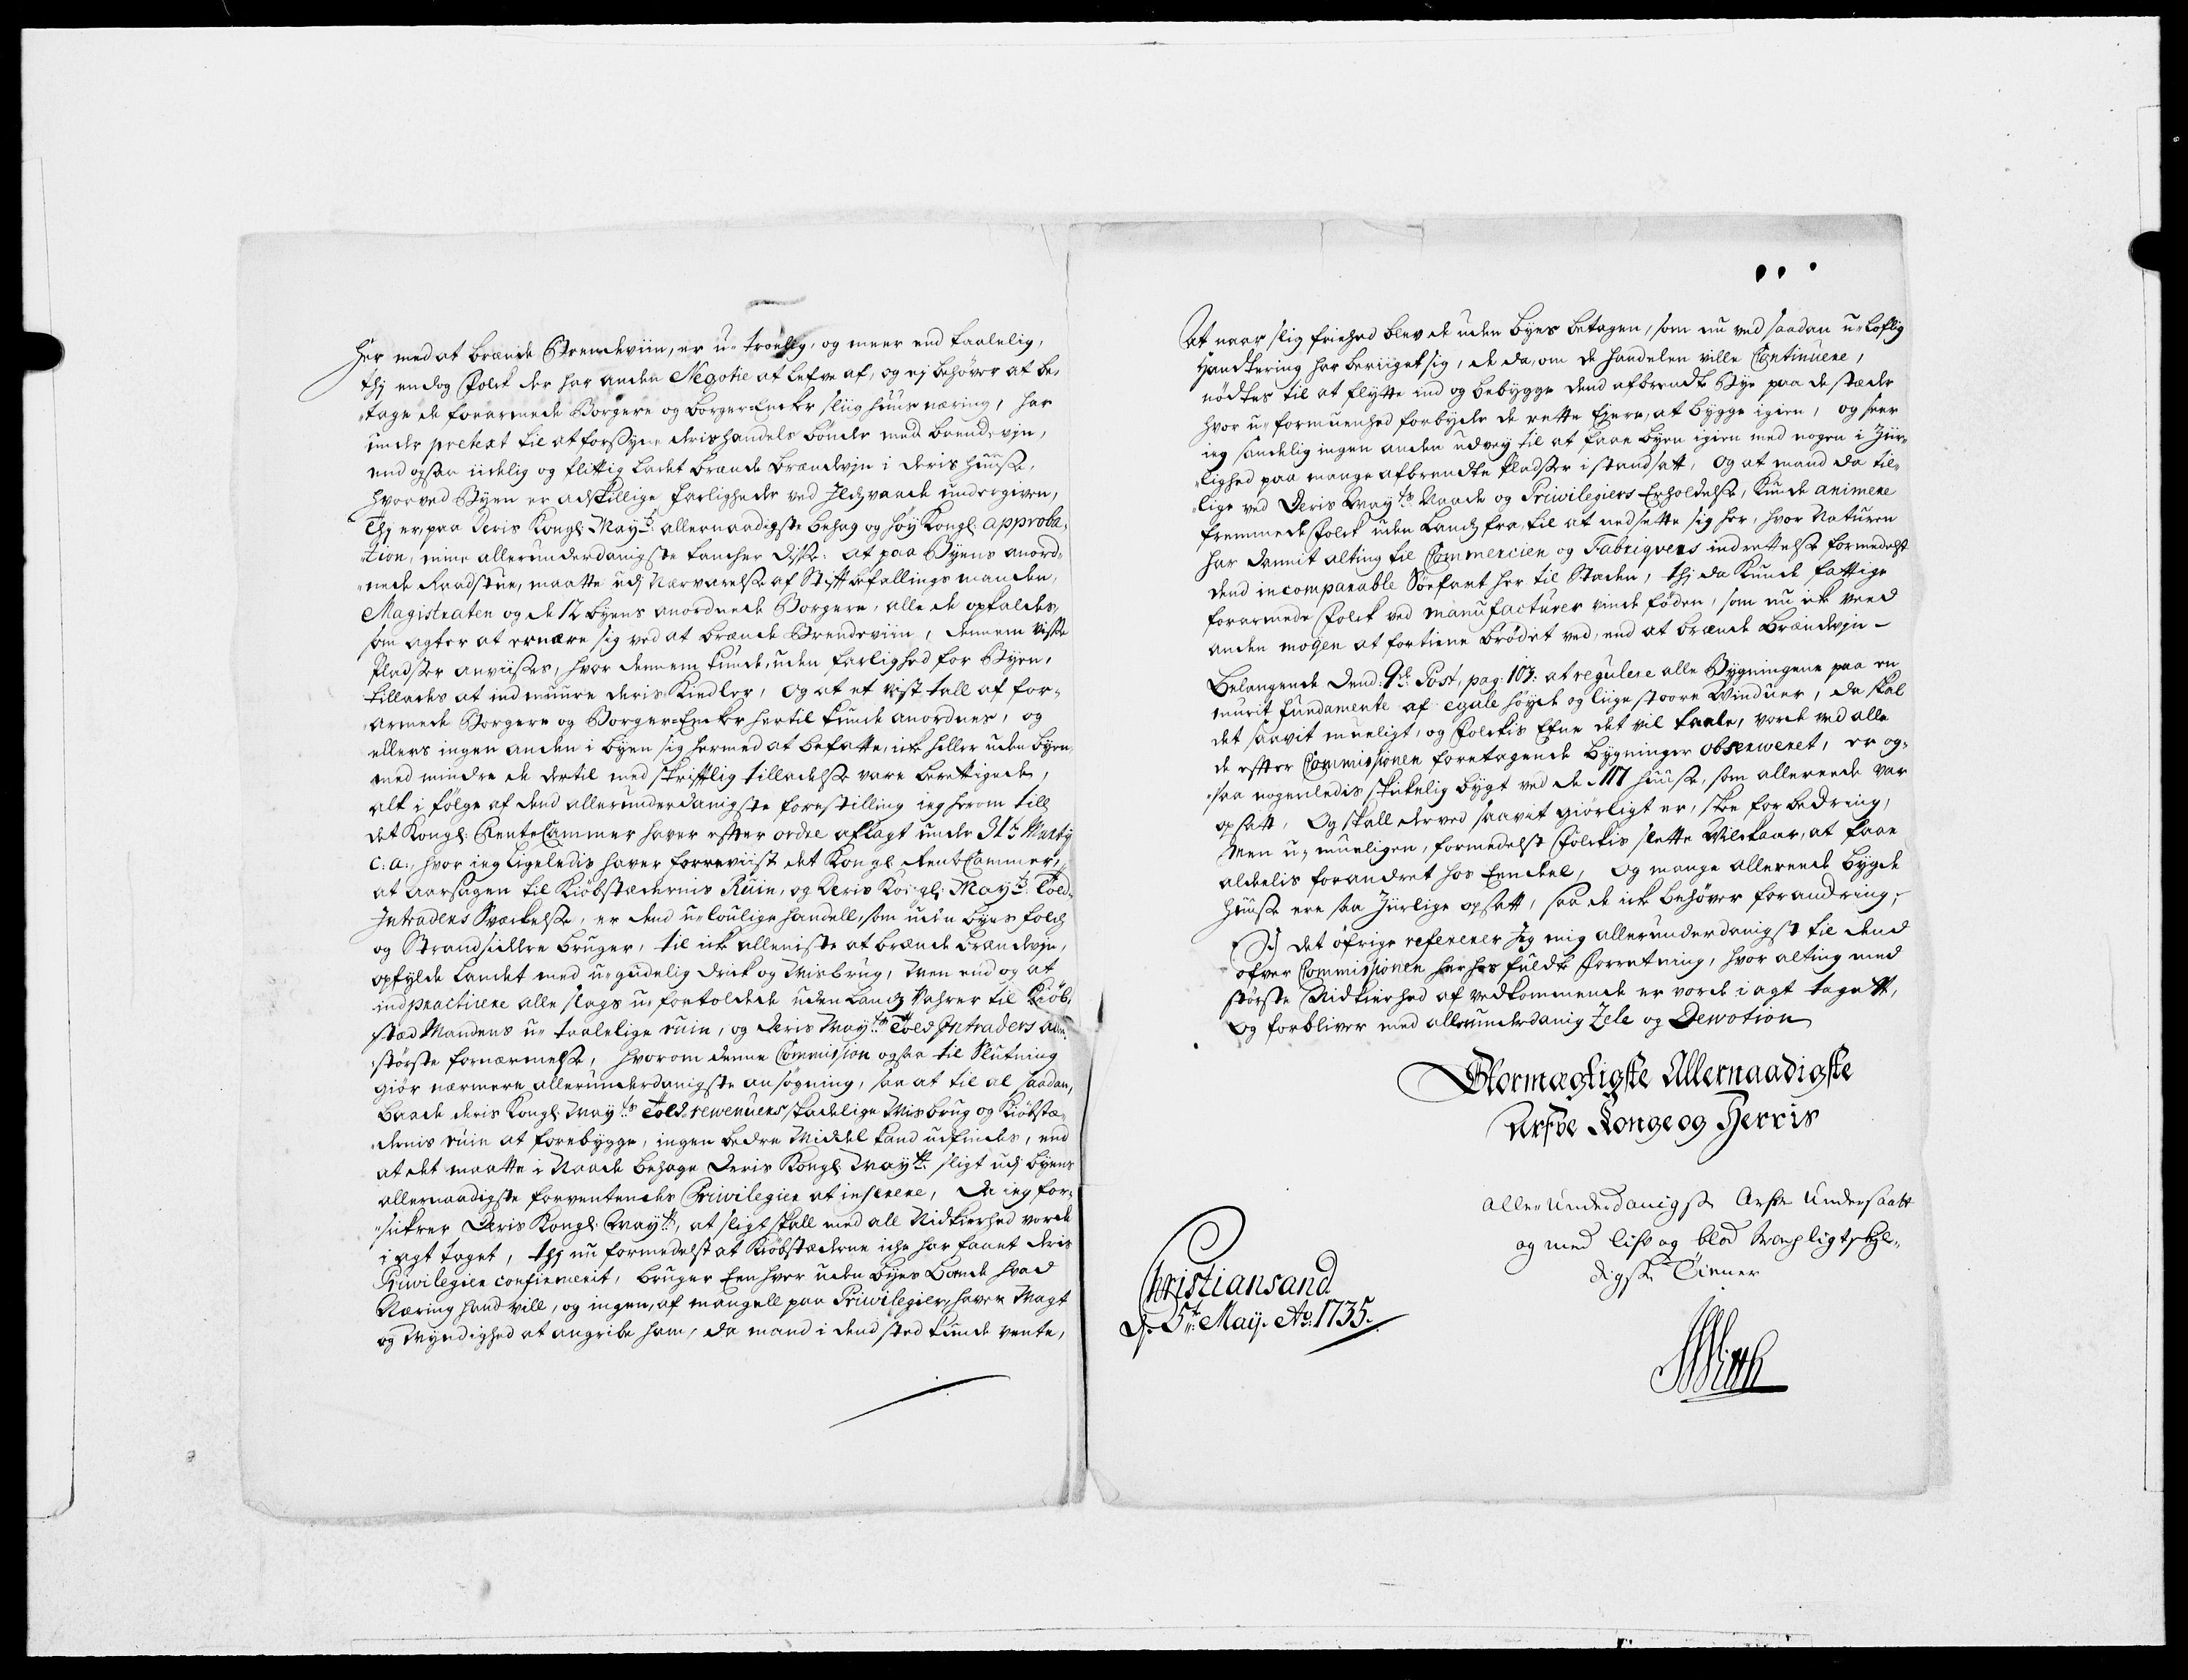 Her med at brænde Brendeviin, er u-troelig, og meer end taalelig,
thj endog Folck der har anden Negotie at lefve af, og ej behøver at be,
"tage de forarmede Borgere og Borger-Encker sliig huus næring, har
under pretext til at forsyne deris handels bønder med brendevjn,
end ogsaa iidelig og flittig ladet brænde brændevjn i deris huuse,
hvorved Byen er adskillige farligheder ved Ildsvaade undergiven,
Thj er, paa Deris Kongl: Mayts: allernaadigste behag og høy Kongl: approba,
"tion, mine allerunderdanigste tancher disse: at paa Byens anord-
"nede Raadstue, maatte udj Nærværelse af Stiftbefallings manden,
Magistraten og de 12 byens anordnede Borgere, alle de opkaldes,
som agter at ernære sig ved at brænde Brendeviin, dennem visse
Pladser anviises, hvor dennem kunde, uden farlighed for Byen,
tillades at indmuure deris Kiedler, og at et vist tall af for-
"armede Borgere og Borger-Encker hertil kunde anordnes, og
ellers ingen anden i byen sig hermed at befatte, ick heller uden byen
med mindre de dertil med skriftlig tilladelse vare berettigede,
alt i følge af dend allerunderdanigste forestilling ieg herom till
det Kongl: RenteCammer haver efter ordre aflagt under 31te Marty
c: a:, hvor ieg ligeledis haver forreviist det Kongl: RenteCammer,
at aarsagen til Kiøbstædernis Ruin, og Deris Kongl: Mayts: Told-
Intraders Svækelse, er dend u-loulige handell, som uden byes folck
og Strandsiddere bruger, til ick alleniste at brænde brændevjn,
opfylde Landet med u-gudelig drick og Misbrug, Men end og at
indpracticere alle slags u-fortoldede uden Lands Vahrer til Kiøb,
"stæd Mandens u-taalelige ruin, og Deris Mayts: Told Intraders aller
"største fornærmelse, hvorom denne Commission ogsaa til Slutning
giør nærmere allerunderdanigste ansøgning, saa at til al saadan,
baade deris Kongl: Mayts Told-revenuers skadelige Misbrug og Kiøbstæ-
"dernis ruin at forebygge, ingen bedre Middel kand udfindes, end
at det maatte i Naade behage Deris Kongl: Maytt: sligt udj byens
allernaadigste forventendes Privilegier at inserere, Da ieg for-
"sickrer Deris Kongl: Maytt:, at sligt skall med all Nidkierhed vorde
i agt taget, thj nu formedelst at Kiøbstæderne iche har faaet deris
Privilegier confirmerit, bruger Een hver uden byes Boende hvad
Næring hand vill, og ingen, af mangell paa Privilegier, haver Magt
og Myndighed at angribe ham, da mand i dend sted kunde vente,
At naar slig friehed blev de uden byes betagen, som nu ved saadan u-loflig
Handtering har beriiget sig, de da, om de handelen ville Continuere,
nødtes til at flytte ind og bebygge dend afbrendte Bye paa de stæder
hvor u-formuenhed forbyder de rette Ejere, at bygge igien, og seer
ieg sandelig ingen anden udvey til at faae byen igien med nogen i Ziir-
"lighed paa mange afbrendte pladser istandsatt, Og at mand da til-
"lige ved Deris Mayts: Naade og Privilegiers Erholdelse, kunde animere
fremmede Folck uden Lands fra, til at nedsette sig her, hvor Naturen
har dannit alting til Commercien og Fabriqvers indrettelse formedelst
dend incomparable Søefart her til Staden, thj da kunde fattige
forarmede Folck ved manufacturer vinde føden, som nu ick veed
anden mogen at fortiene brødet ved, end at brænde Brændevjn -
Belangende Dend 9de Post, pag: 103: at regulere alle Bygningene paa en
muurit fundamente af egale høyde og liige stoore Vinduer, da skal
det saavit mueligt, og Folckis Efne det vil taale, vorde ved alle
de effter Commissionen foretagende bygninger observeret, er og-
"saa nogenledis skickelig bygt ved de 117 huuse, som allereede var
opsatt, Og skall derved saavit giørligt er, skee forbedring,
Men u-mueligen, formedelst Folckis slette Vilckaar, at faae
aldeelis forandret hos Eendeel, Og mange allereede bygde
huuse ere saa Ziirlige opsatt, saa de ick behøver forandring;
I det øfrige referer Jeg mig allerunderdanigst til dend
ofver Commissionen her hos fuldte forretning, hvor alting med
største Nidkierhed af vedkommende er vorde i agt tagett,
og forbliver med allerunderdanig Zele og Devotion
Stormægtigste Allernaadigste
Arfve Konge og Herris
Aller-Underdanigste Arfve Undersaatt
og med lif og blod troepligtskyl-
digste Tienner
Christiansand
d: 5te: Maij. Ao: 1735.